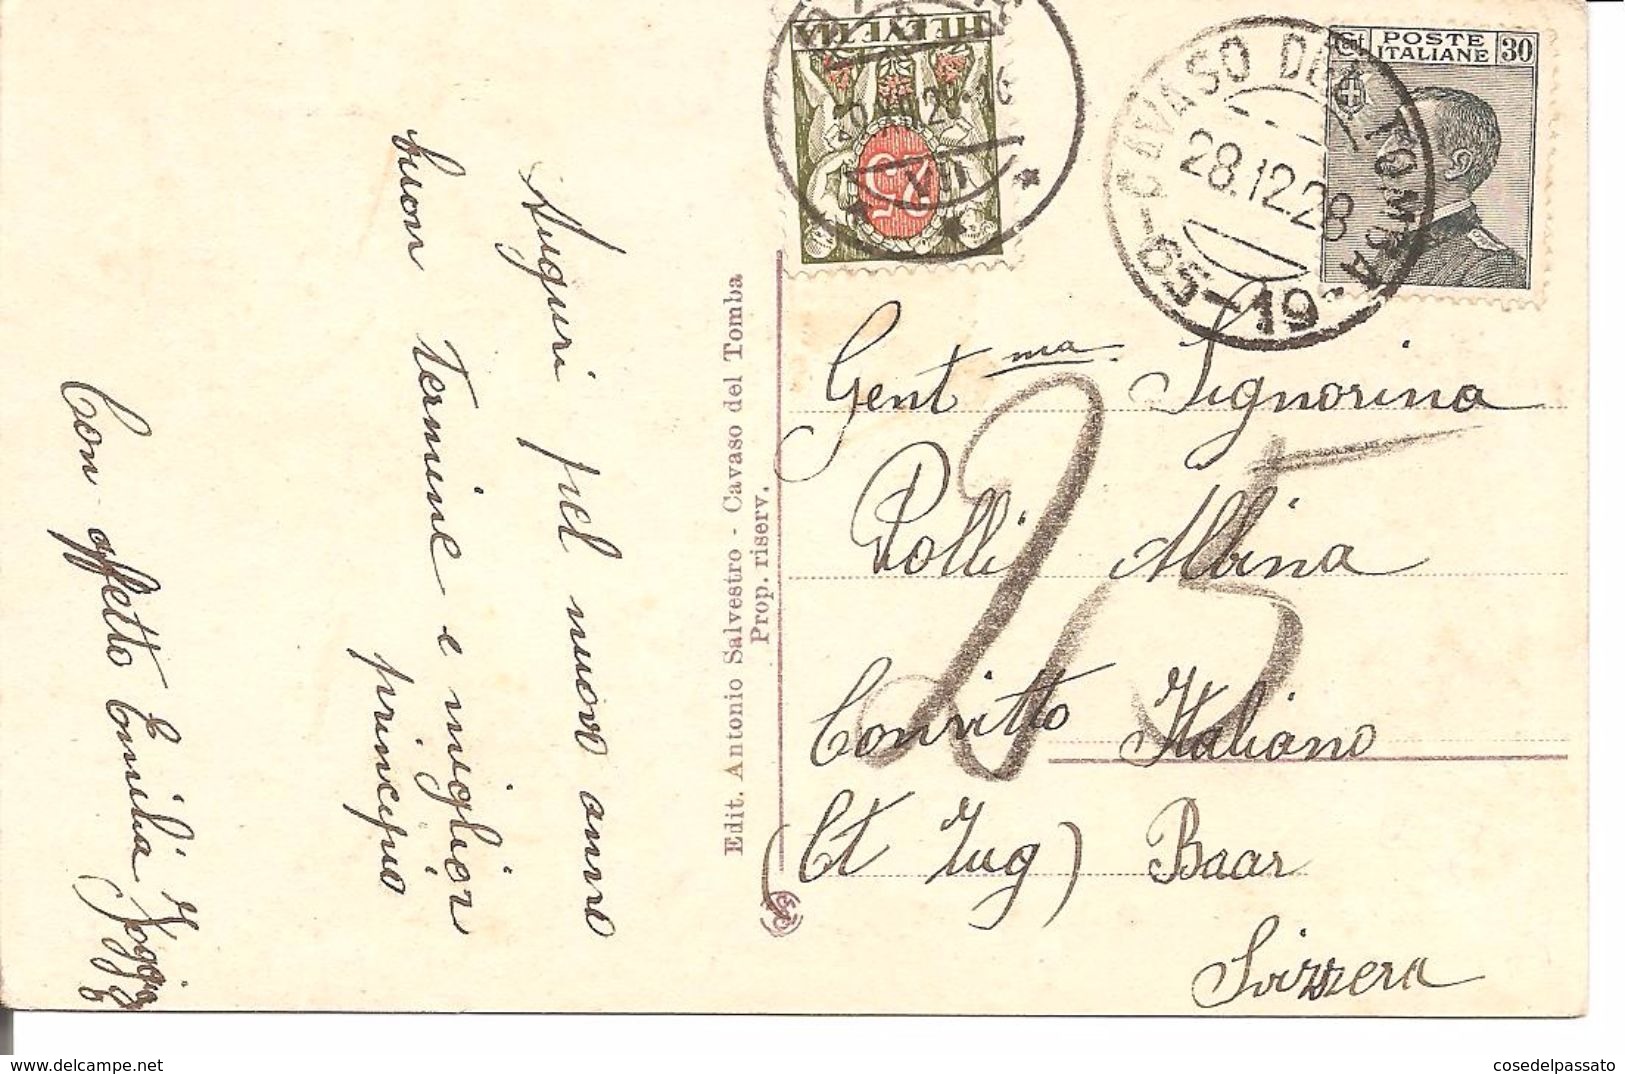 Auguri pel nuovo anno
buon termine e miglior
principio
Con affetto Emilia
Edit. Antonio Salvestro - Cavaso del Tomba
Prop. riserv.
HELVETIA
25
CAVASO DEL TOMBA
28.12.28
Cent POSTE ITALIANE 30
Gent ma Signorina
Polli Albina
25
Convitto Italiano
(Ct Zug) Baar
Svizzera
cosedelpassato